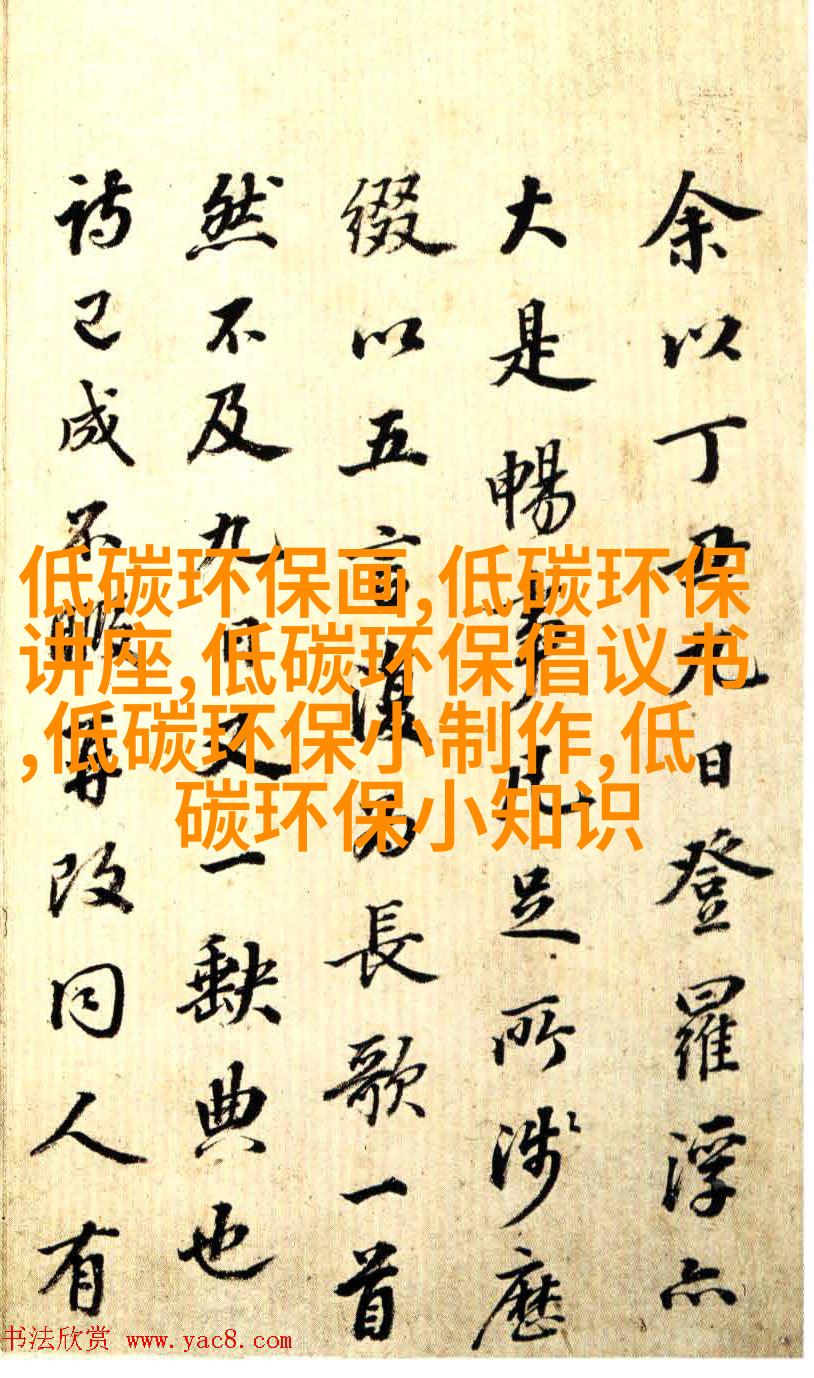 余以丁丑九日登羅浮亦
大是暢足所涉歷
綴以五言復為長歌一首
然不及九日又一缺典也
詩已成不暇改同人有
低碳环保画,低碳环保
讲座,低碳环保倡议书
,低碳环保小制作,低
碳环保小知识
书法欣赏 www.yac8.com